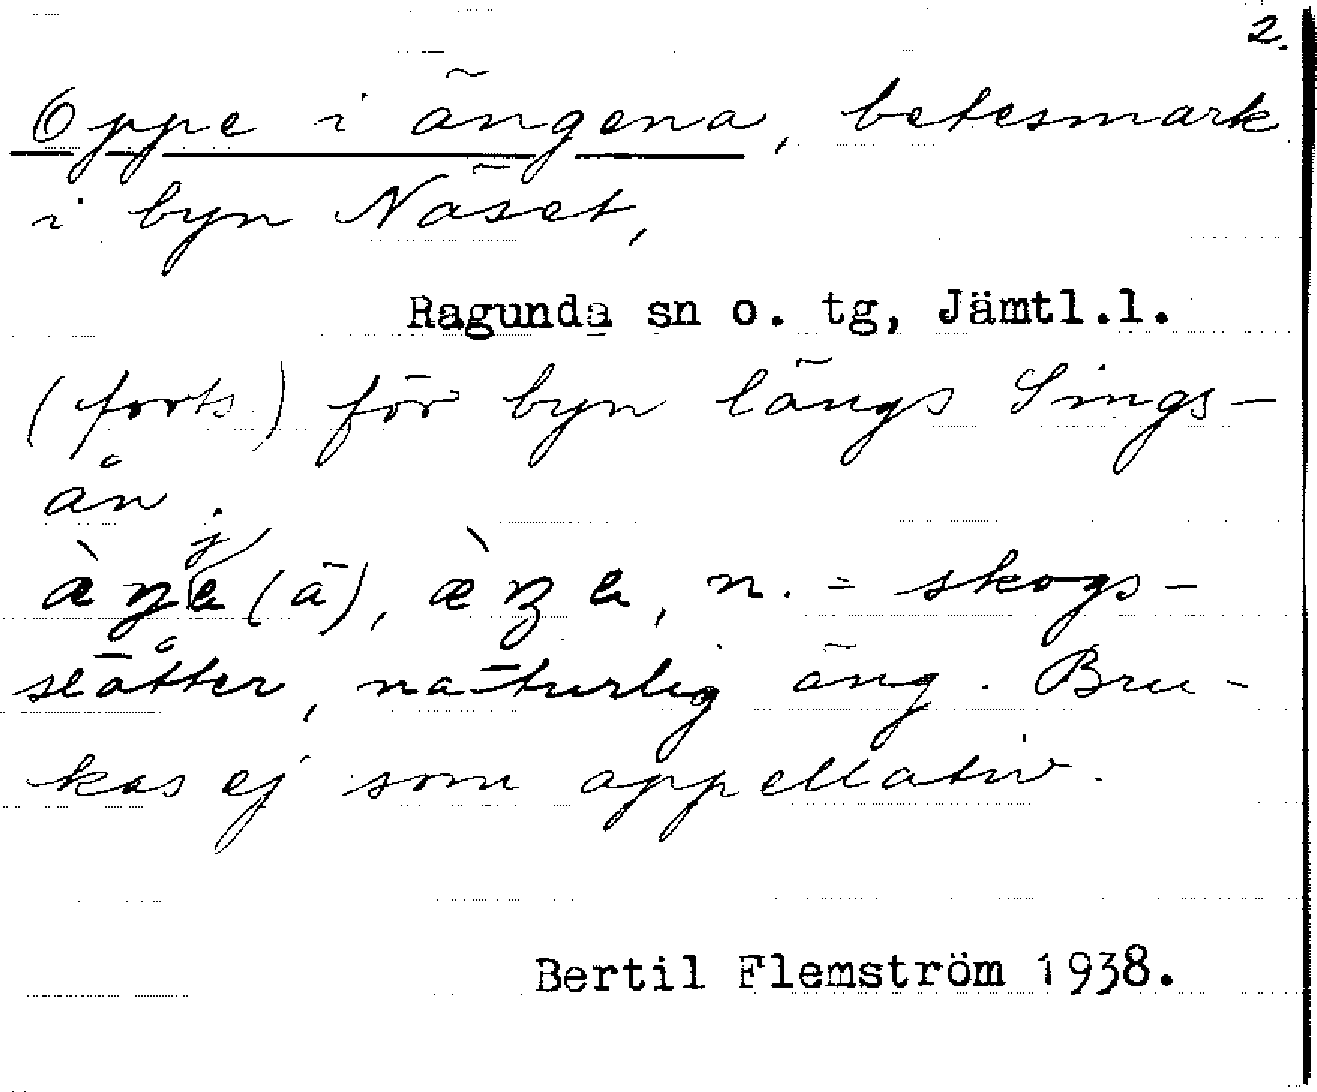 2.
Oppe i ängena, betesmark
i byn Näset,
Ragunda sn o. tg, Jämtl.l.
(forts.) för byn längs Sings-
ån.
(ä), n. = skogs-
slåtter, naturlig äng. Bru-
kas ej som appellativ.
Bertil Flemström 1938.